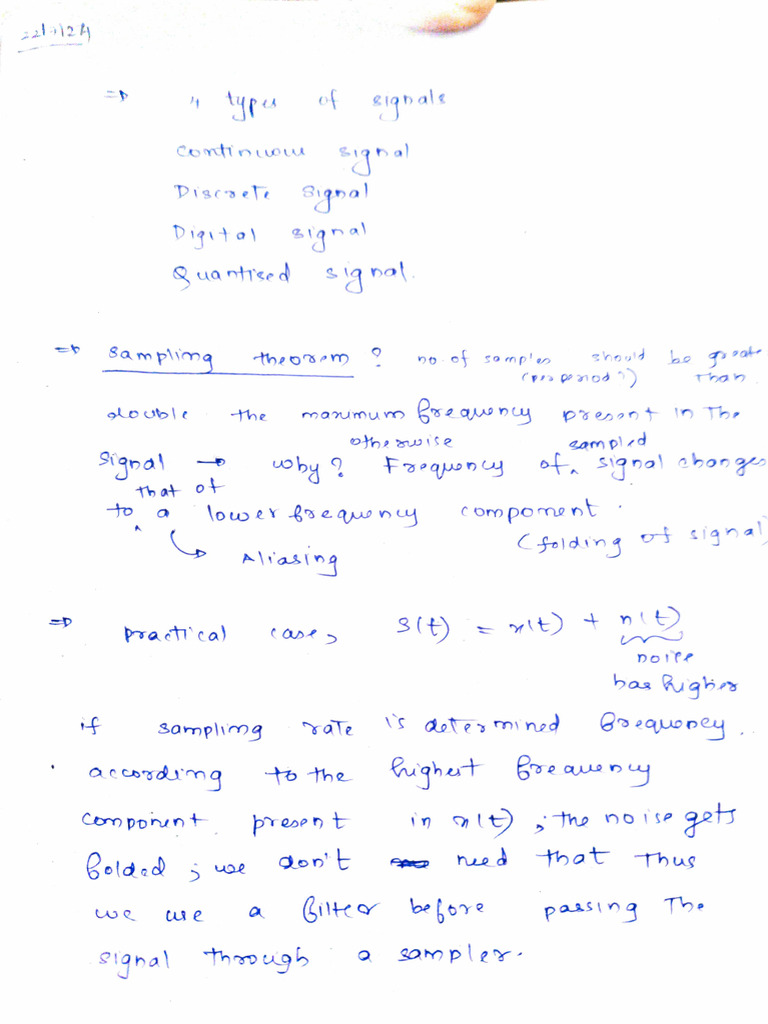 ⇒ 4 types of signals
Continuous signal
Discrete signal
Digital signal
Quantised signal.
⇒ Sampling theorem? no. of samples should be greate
(per period?) than
double the maximum frequency present in the
otherwise sampled
signal → why? Frequency of signal changes
that of
to a lower frequency component.
Aliasing (folding of signal)
⇒ practical case, s(t) = x(t) + n(t)
noise
has higher
if sampling rate is determined frequency.
according to the highest frequency
component present in x(t) ; the noise gets
folded ; we don't need that thus
we use a filter before passing the
signal through a sampler.